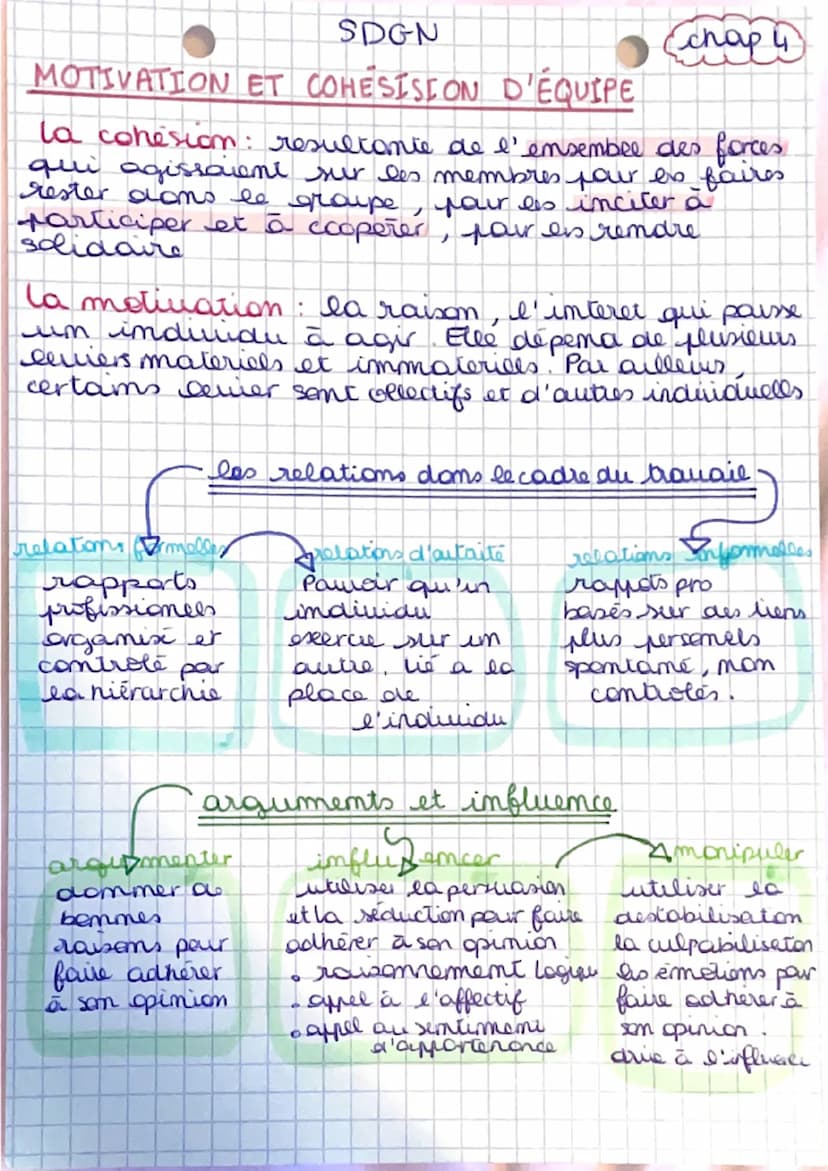 SDGN
chap 4
MOTIVATION ET COHÉSISION D'ÉQUIPE
la cohésion : resultante de l'ensemble des forces
qui agissaient sur les membres pour les faires
rester dans le groupe, pour les inciter à
participer et à ccoperer, pour les rendre
solidaire
la motivation : la raison, l'interet qui pousse
un individu à agir. Elle dépend de plusieurs
leviers materiels et immateriels. Par ailleurs,
certains levier sont collectifs et d'autres individuelles
les relations dans le cadre du travail
relations formelles
rapports
profissionnels
organisé et
controlé par
la hiérarchie
relations d'autorité
Pouvoir qu'un
individu
exerce sur un
autre, lié a la
place de
l'individu
relations informelles
rappots pro
basés sur des liens
plus personels
spontané, non
controlés.
arguments et influence
argumenter
donner de
bonnes
raisons pour
faire adhérer
à son opinion
influencer
utiliser la persuasion
et la séduction pour faire
adhérer à son opinion
• raisonnement logique
• appel à l'affectif
• appel au sentiment
d'appartenance
manipuler
utiliser la
destabilisation
la culpabilisation
les émotions pour
faire adhérer à
son opinion.
à l'influence